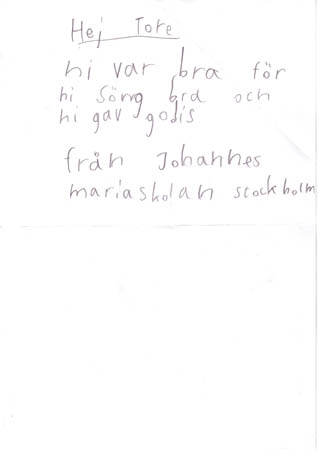 Hej Tore
hi var bra för
hi Söng bra och
hi gav godis
från Johannes
mariaskolan stockholm